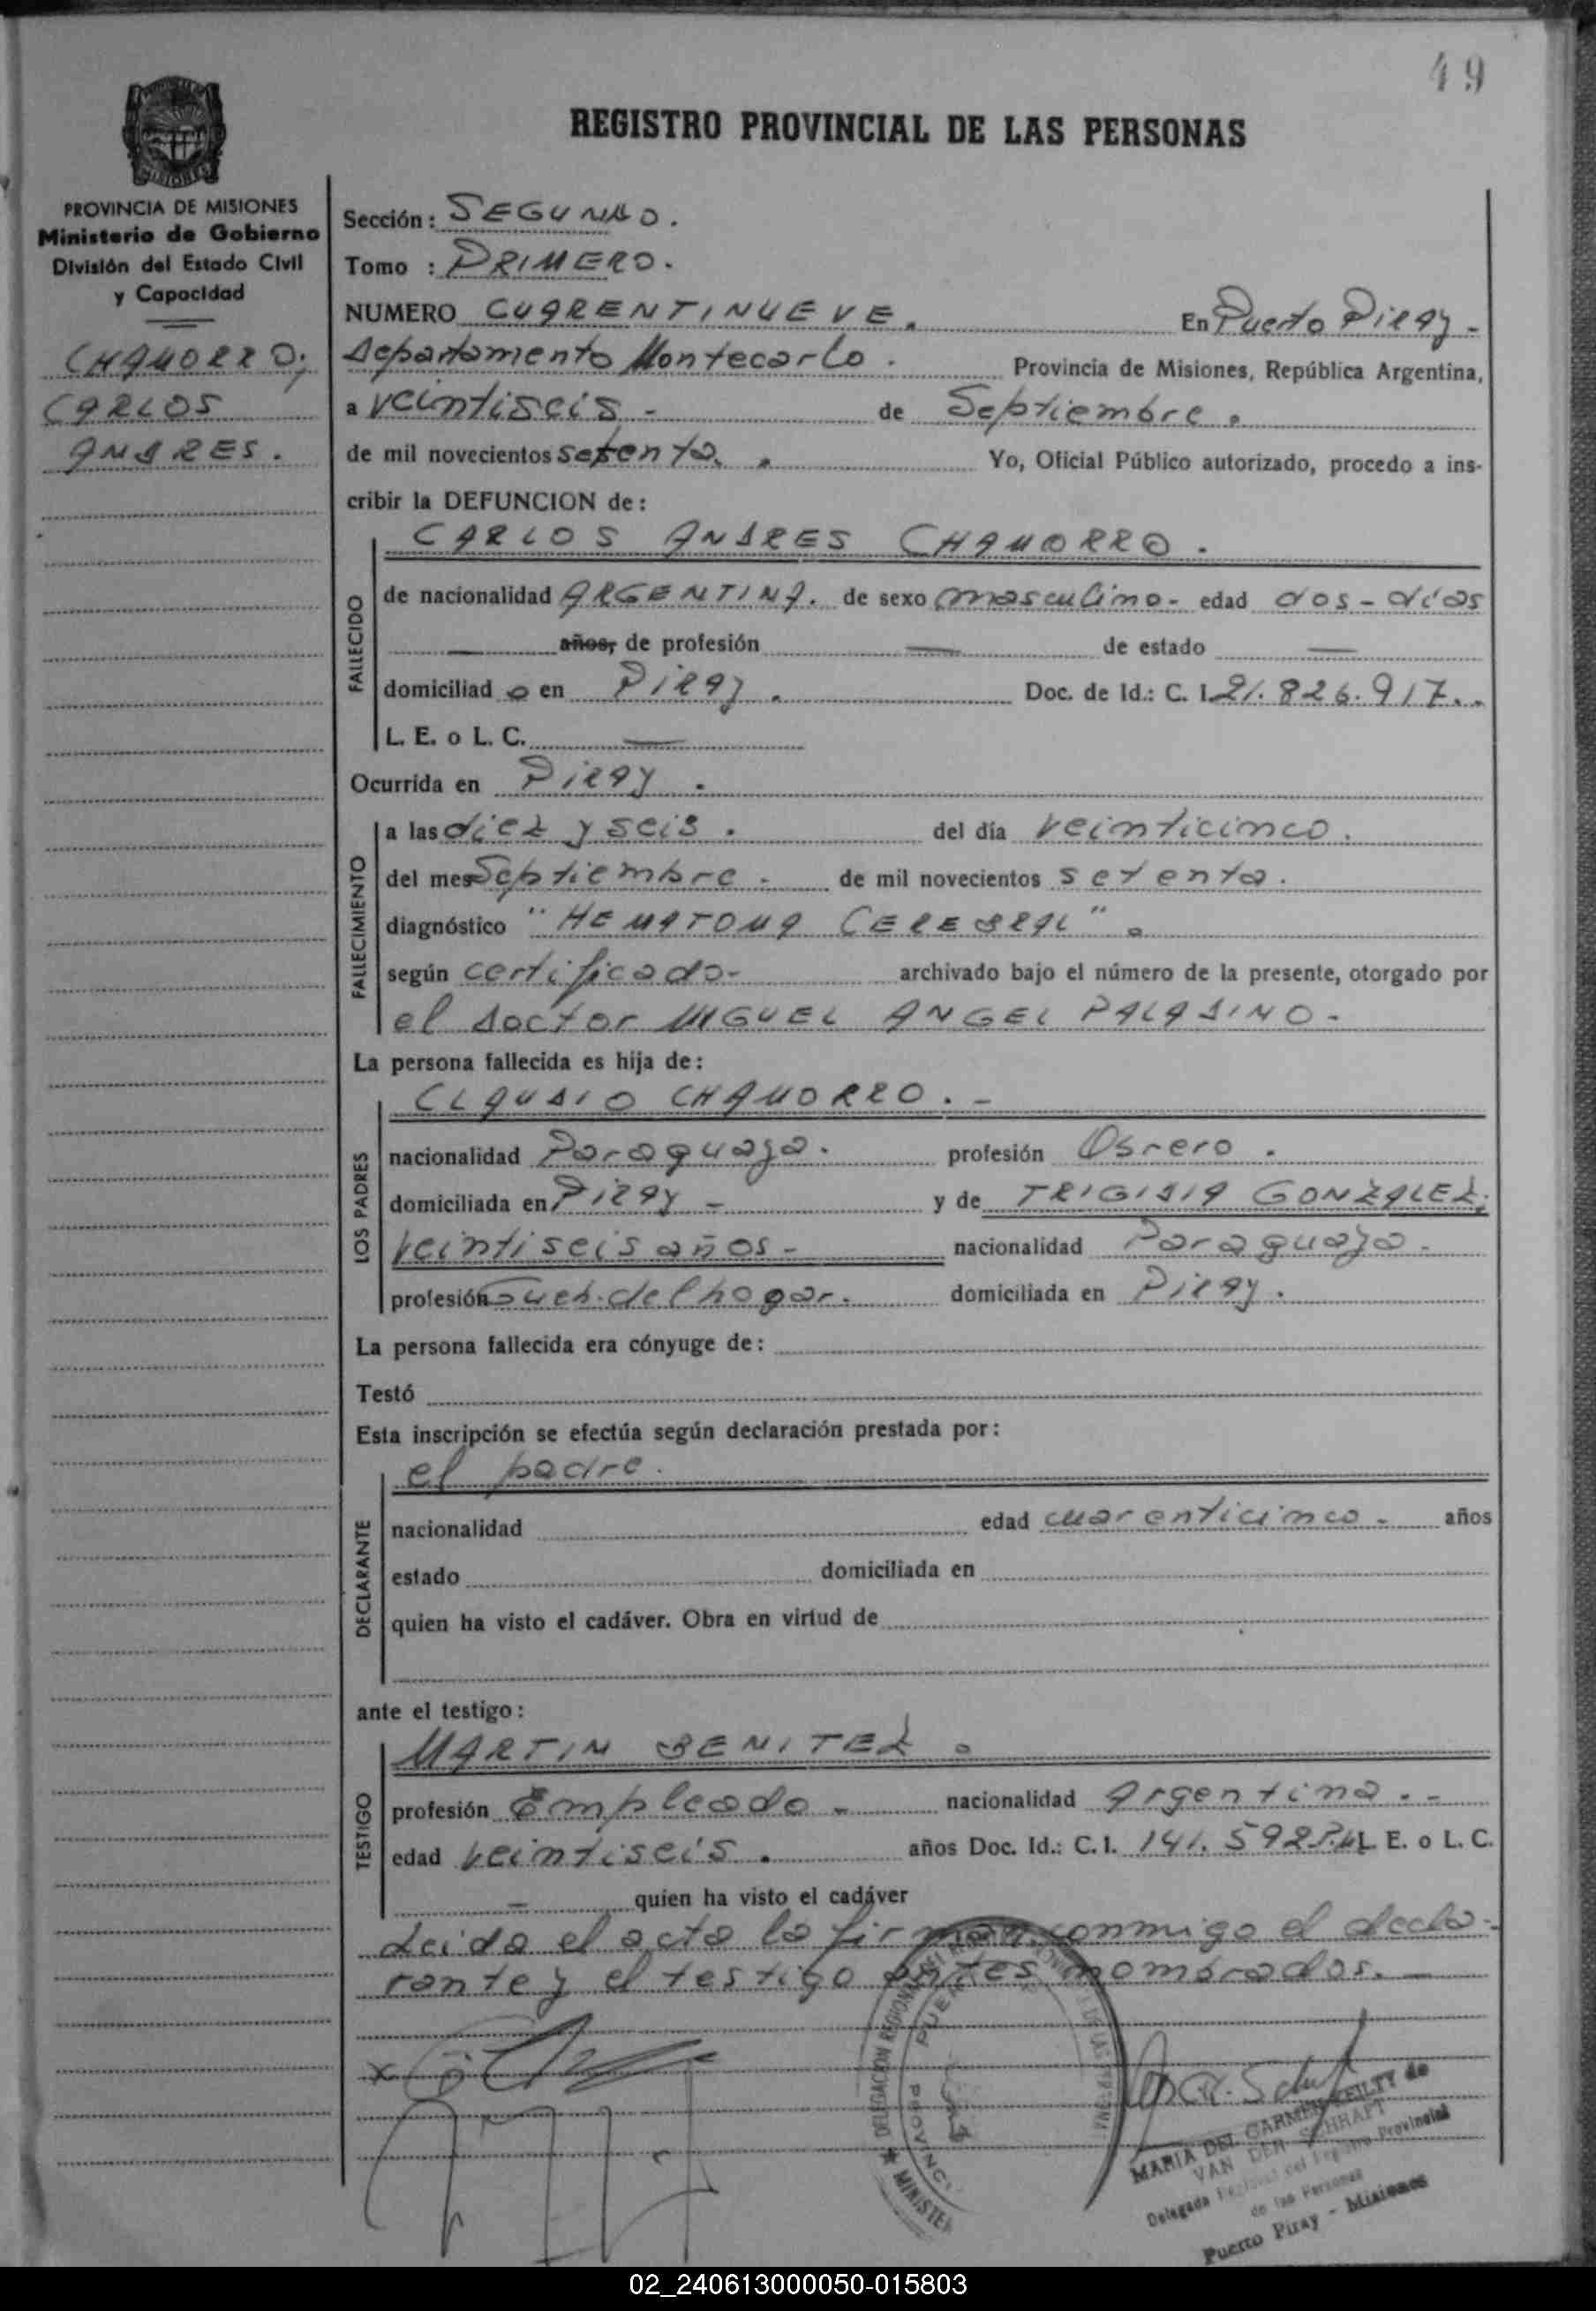 49
REGISTRO PROVINCIAL DE LAS PERSONAS
MISIONES
PROVINCIA DE MISIONES
Ministerio de Gobierno
División del Estado Civil
y Capacidad
CHAMORRO,
CARLOS
ANDRES.
Sección: SEGUNDO.
Tomo : PRIMERO.
NUMERO CUARENTINUEVE. En Puerto Piray -
Departamento Montecarlo. Provincia de Misiones, República Argentina,
a veintiseis - de Septiembre.
de mil novecientos setenta. Yo, Oficial Público autorizado, procedo a ins-
cribir la DEFUNCION de:
FALLECIDO
CARLOS ANDRES CHAMORRO.
de nacionalidad ARGENTINA. de sexo masculino- edad dos - días
— años, de profesión — de estado —
domiciliad o en Piray. Doc. de Id.: C. I. 21.826.917..
L. E. o L. C. —
Ocurrida en Piray.
FALLECIMIENTO
a las diez y seis. del día veinticinco.
del mes Septiembre. de mil novecientos setenta.
diagnóstico "HEMATOMA CEREBRAL".
según certificado- archivado bajo el número de la presente, otorgado por
el doctor MIGUEL ANGEL PALADINO-
La persona fallecida es hija de:
LOS PADRES
CLAUDIO CHAMORRO. -
nacionalidad Paraguaya. profesión Obrero.
domiciliada en Piray - y de TRIGIDIA GONZALEZ;
veintiseis años- nacionalidad Paraguaya-
profesión Queh. del hogar. domiciliada en Piray.
La persona fallecida era cónyuge de:
Testó
Esta inscripción se efectúa según declaración prestada por:
DECLARANTE
el padre.
nacionalidad edad cuarenticinco- años
estado domiciliada en
quien ha visto el cadáver. Obra en virtud de
ante el testigo:
TESTIGO
MARTIN BENITEZ.
profesión Empleado - nacionalidad Argentina. -
edad veintiseis. años Doc. Id.: C. I. 141.592 L. E. o L. C.
- quien ha visto el cadáver
Leida el acta la firman conmigo el decla-
rante y el testigo antes nombrados. -
x
DELEGACION REGIONAL
PROVINC
MINISTE
MARIA DEL CARMEN REILTY de
VAN DER SCHRAFT
Delegada del Registro Provincial
de las Personas
Puerto Piray - Misiones
02_240613000050-015803